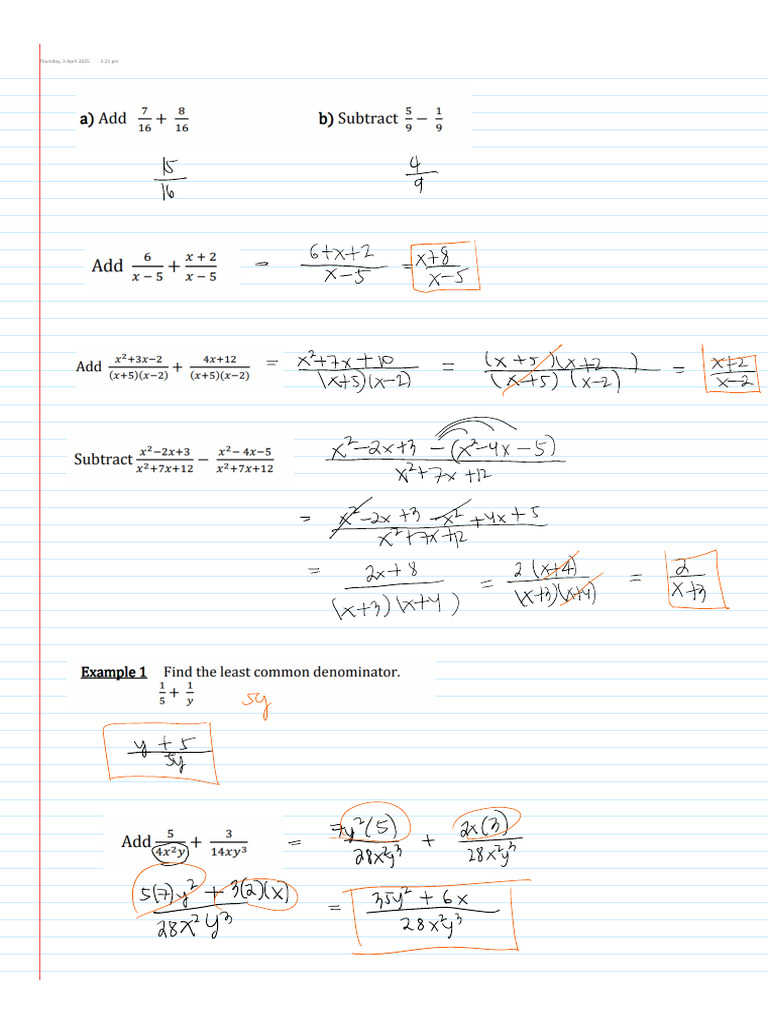 Thursday, 3 April 2025 5:21 pm
a) Add 7/16 + 8/16 b) Subtract 5/9 − 1/9
15/16 4/9
Add 6/(x − 5) + (x + 2)/(x − 5) = (6+x+2)/(x−5) = (x+8)/(x−5)
Add (x²+3x−2)/((x+5)(x−2)) + (4x+12)/((x+5)(x−2)) = (x²+7x+10)/((x+5)(x−2)) = ((x+5)(x+2))/((x+5)(x−2)) = (x+2)/(x−2)
Subtract (x²−2x+3)/(x²+7x+12) − (x²−4x−5)/(x²+7x+12) (x²−2x+3 −(x²−4x−5))/(x²+7x+12)
= (x²−2x+3−x²+4x+5)/(x²+7x+12)
= (2x+8)/((x+3)(x+4)) = (2(x+4))/((x+3)(x+4)) = 2/(x+3)
Example 1 Find the least common denominator.
1/5 + 1/y 5y
(y+5)/5y
Add 5/(4x²y) + 3/(14xy³) = (7y²(5))/(28x²y³) + (2x(3))/(28x²y³)
(5(7)y² + 3(2)(x))/(28x²y³) = (35y² + 6x)/(28x²y³)